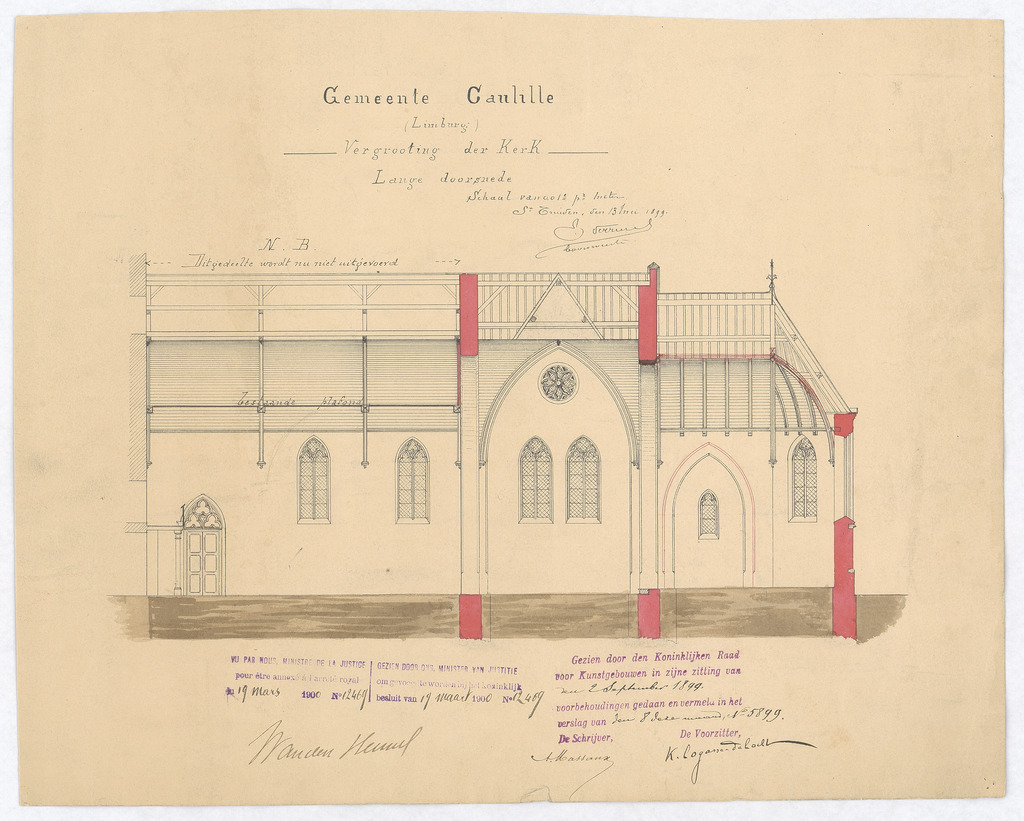 Gemeente Caulille
(Limburg)
Vergrooting der Kerk
Lange doorsnede
Schaal van 0.015 pr
St Truiden, den 13 1899.
N. B.
Ditgedeelte wordt nu niet uitgevoerd
bestaande plafond
VU PAR NOUS, MINISTRE DE LA JUSTICE
pour être annexé à l'arrêté royal
du 19 Mars 1900 No 12469
GEZIEN DOOR ONS, MINISTER VAN JUSTITIE
om gevoegd te worden bij het Koninklijk
besluit van 19 maart 1900 No 12469
Gezien door den Koninklijken Raad
voor Kunstgebouwen in zijne zitting van
den 2 September 1899.
voorbehoudingen gedaan en vermeld in het
verslag van den 8 dezer maand, No 5899.
De Schrijver, De Voorzitter,
A. Massaux